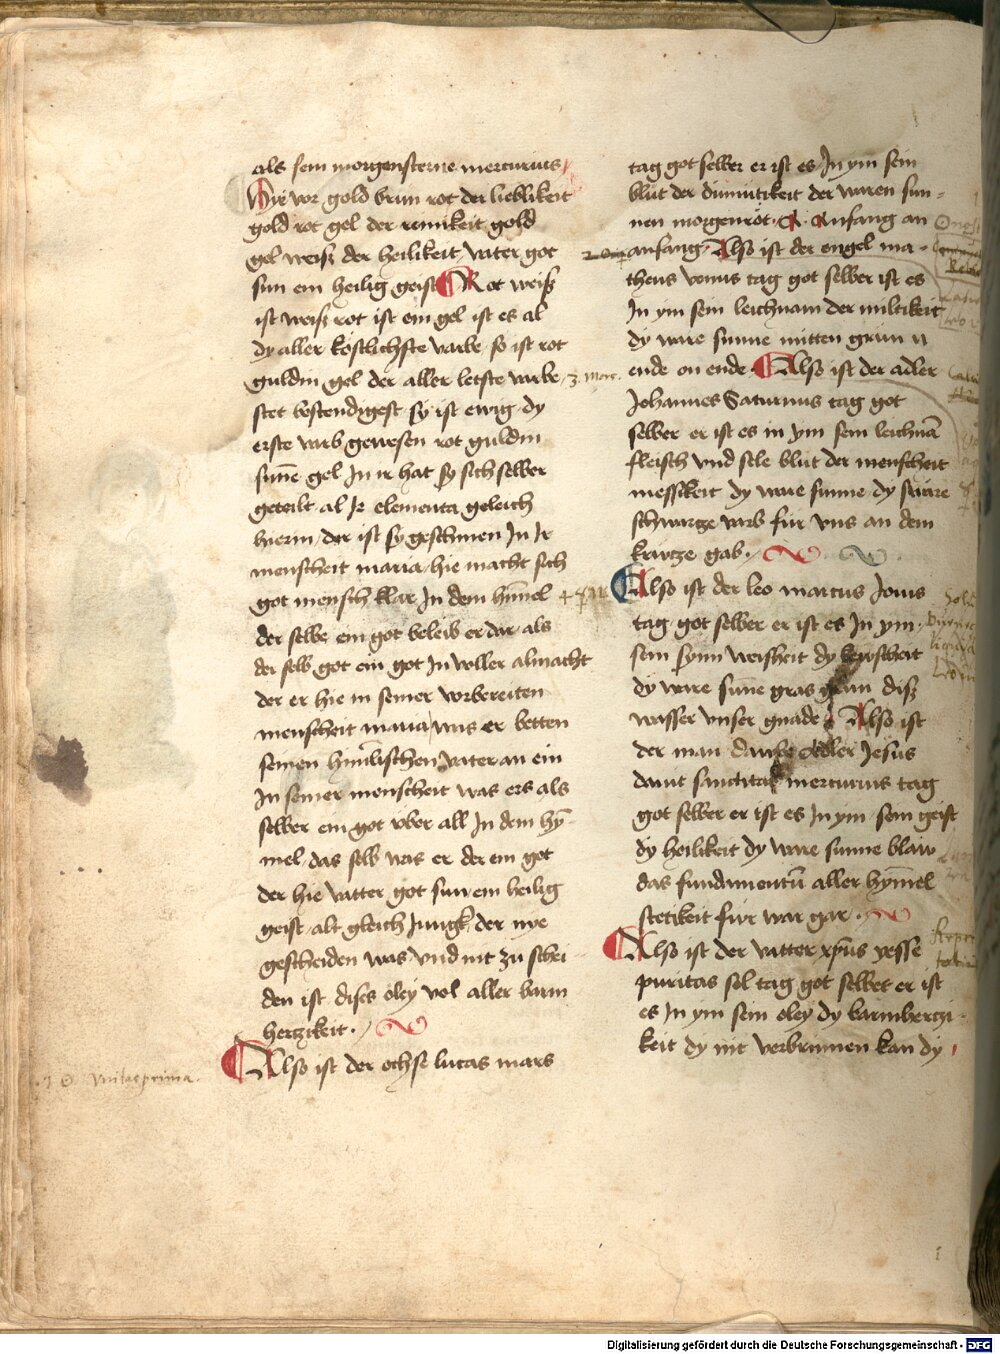 als sein morgensterne mercurius
Wye vor gold brun rot der lieblikeit
gold rot gel der reinikeit gold
gel weiß der heilikeit vater got
sun ein heilig geist Rot weiß
ist weiß rot ist ein gel ist es al
dy aller kostlichste varbe so ist rot
guldin gel der aller letste varbe
stet bestendigest sy ist ewig dy
erste varb gewesen rot guldin
sunē gel In ir hat sy sich selber
geteilt al Ir elementa geleich
hierin der ist sy geschinen In Ir
menscheit maria hie macht sich
got mensch klar In dem himel
der selbe ein got beleib er dar als
der selb got ein got In voller almacht
der er hie in seiner vorbereiten
menscheit maria was er betten
seinen himlischen vater an ein
In seiner menscheit was ers als
selber ein got vber all In dem hÿ
mel das selb was er der ein got
der hie vatter got sun ein heilig
geist alt gleich Jungk der nye
gescheiden was vnd nit zu schei
den ist dises oley vol aller barm
hertzikeit.
Also ist der ochse lucas mars
.1 O vnitas prima.
tag got selber er ist es In ym sein
blut der dimutikeit der waren sun-
nen morgenrot A Anfang an
anfang Also ist der engel ma-
theus venus tag got selber ist es
In ym sein leichnam der miltikeit
dy ware sunne mitten grun n
3. mar.
ende on ende Also ist der adler
Johannes Saturnus tag got
selber er ist es in ym sein leichnā
fleisch vnd sele blut der menscheit
messikeit dy ware sunne dy
schwartze varb fur vns an dem
krewtze gab.
Also ist der leo marcus Jouis
tag got selber er ist es In ym
sein synn weisheit dy kewscheit
dy ware sunē gras grun diß
wasser vnser gnade Also ist
der man dawbe Adler Jesus
mercurius tag
got selber er ist es In ym sein geist
dy heilikeit dy ware sunne blaw
das fundamentū aller hymel
stetikeit fuer war gar.
Also ist der vatter xp̄us yesse
puritas sol tag got selber er ist
es In ym sein oley dy barmhertzi-
keit dy nit verbrinnen kan dy
Digitalisierung gefördert durch die Deutsche Forschungsgemeinschaft - DFG